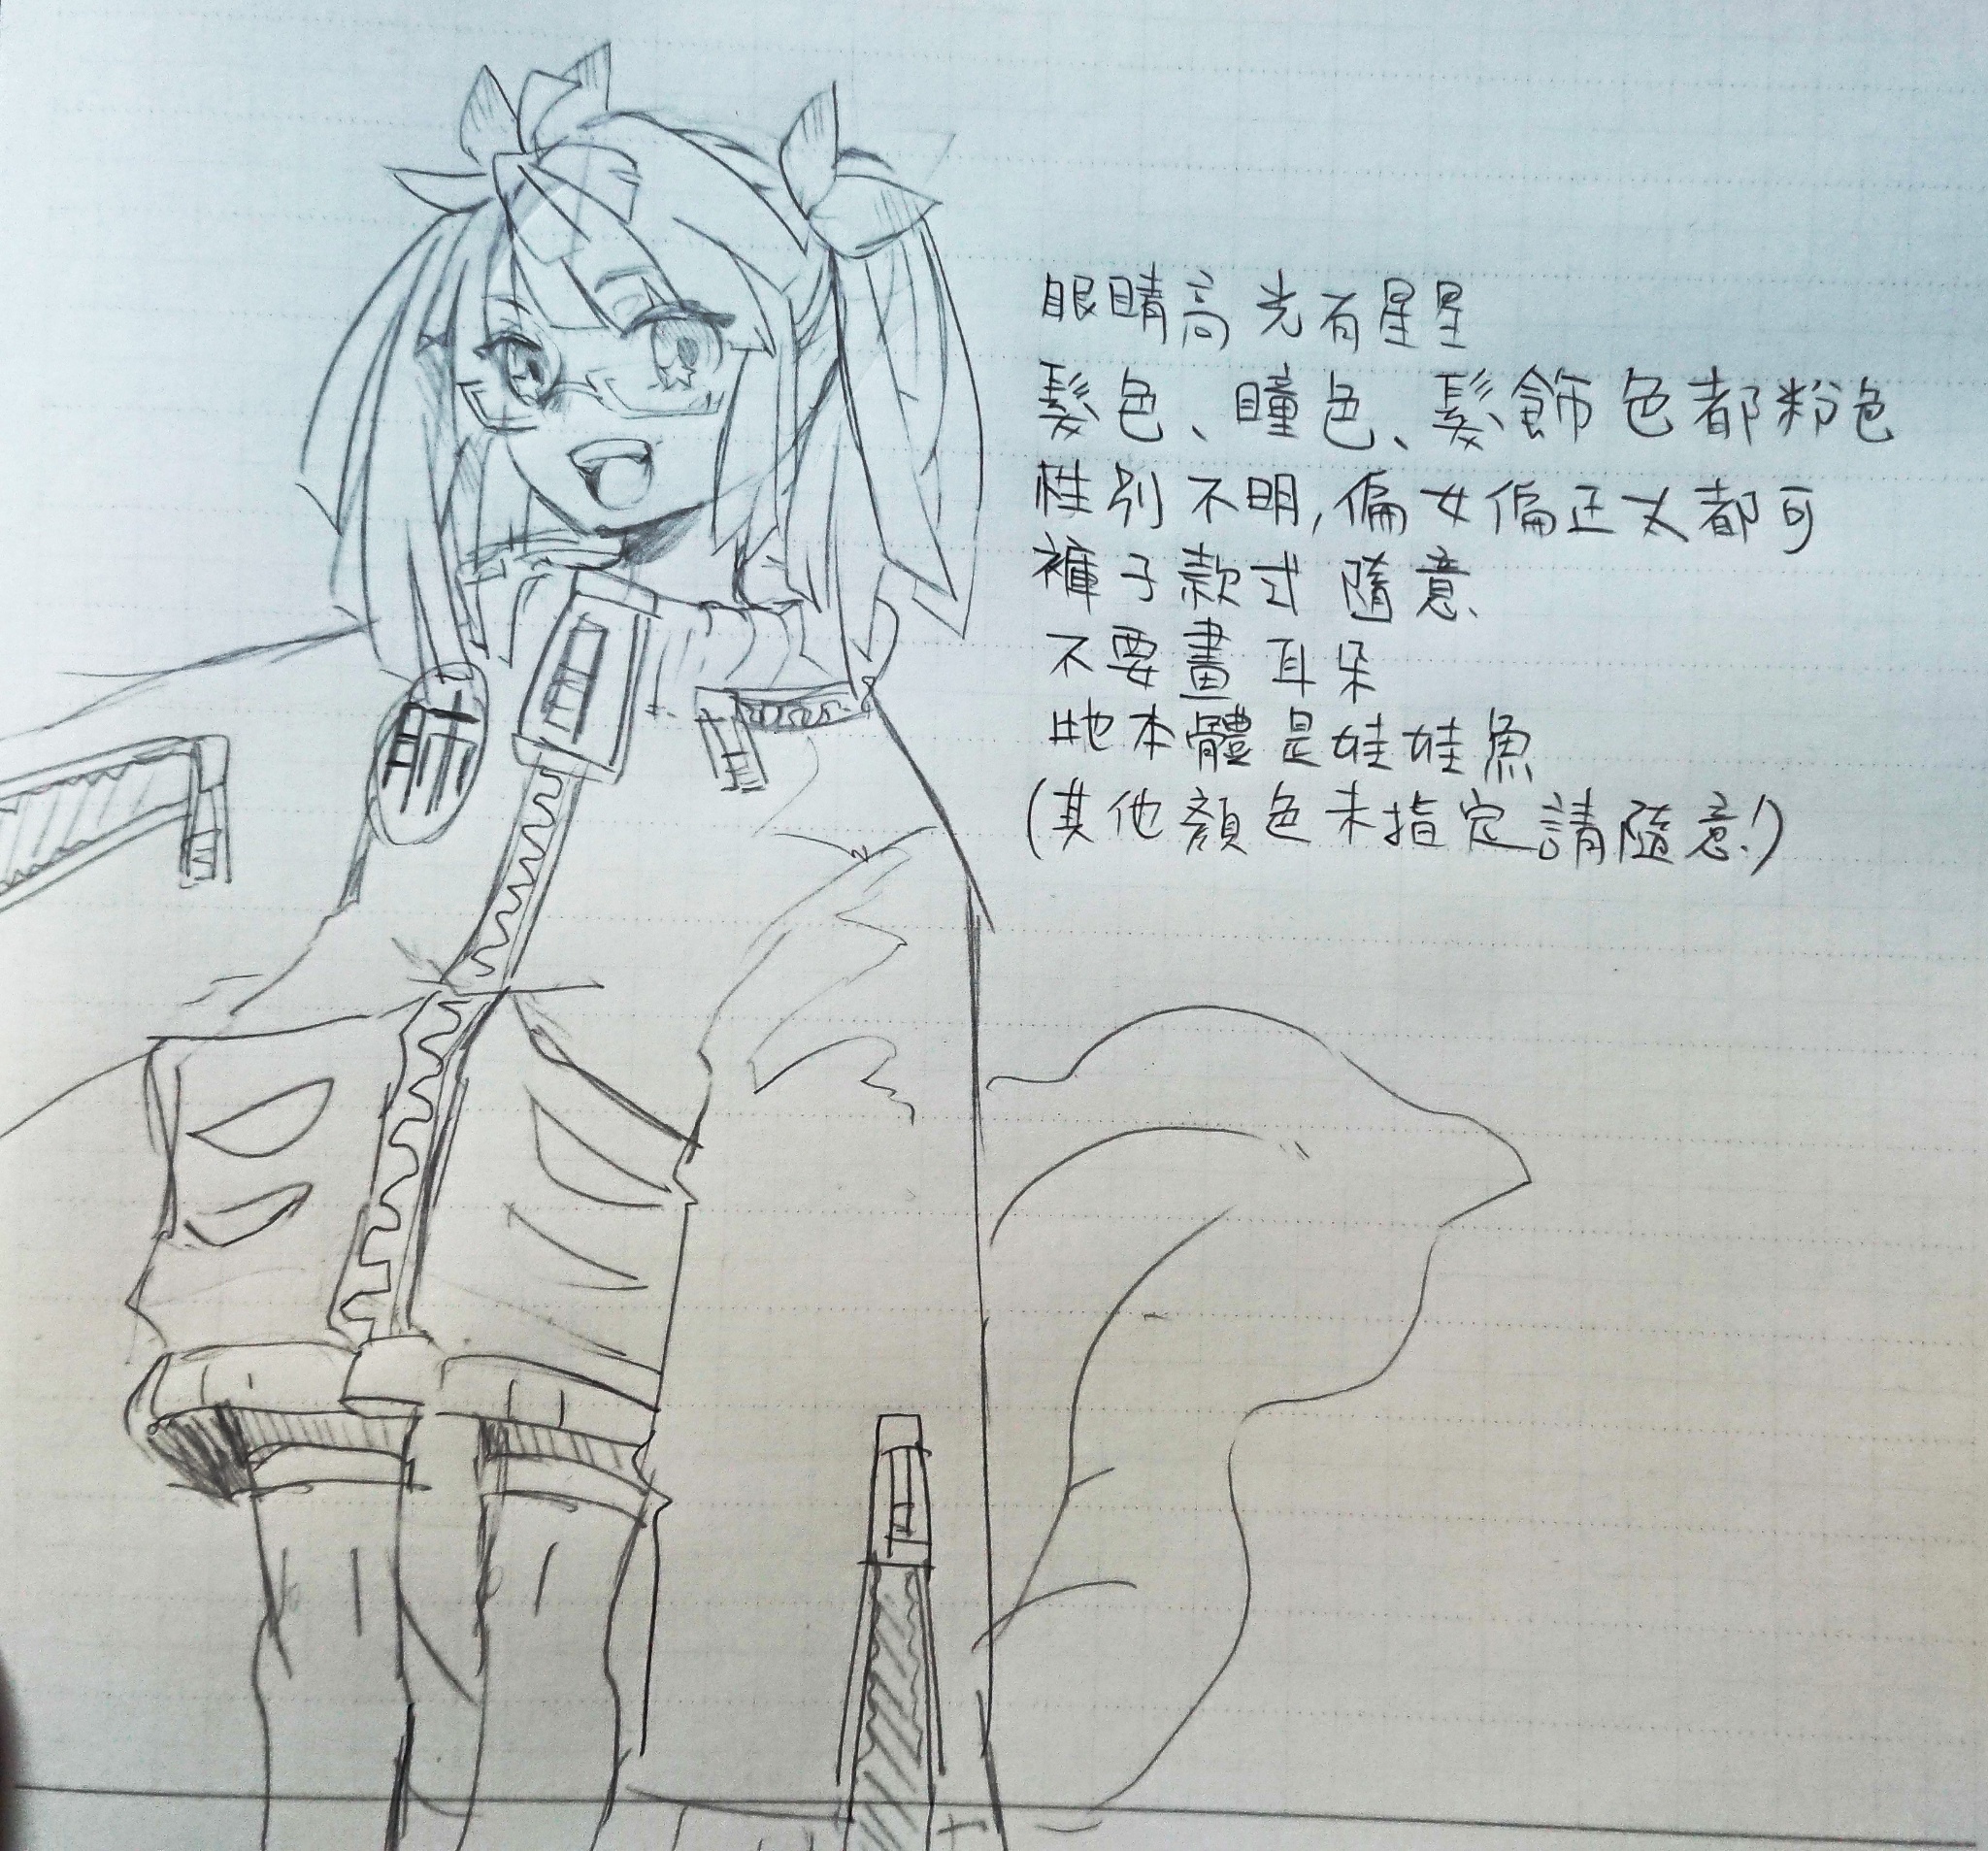 眼睛高光有星星
髮色、瞳色、髮飾色都粉色
性別不明,偏女偏正太都可
褲子款式隨意
不要畫耳朵
牠本體是娃娃魚
(其他顏色未指定請隨意!)